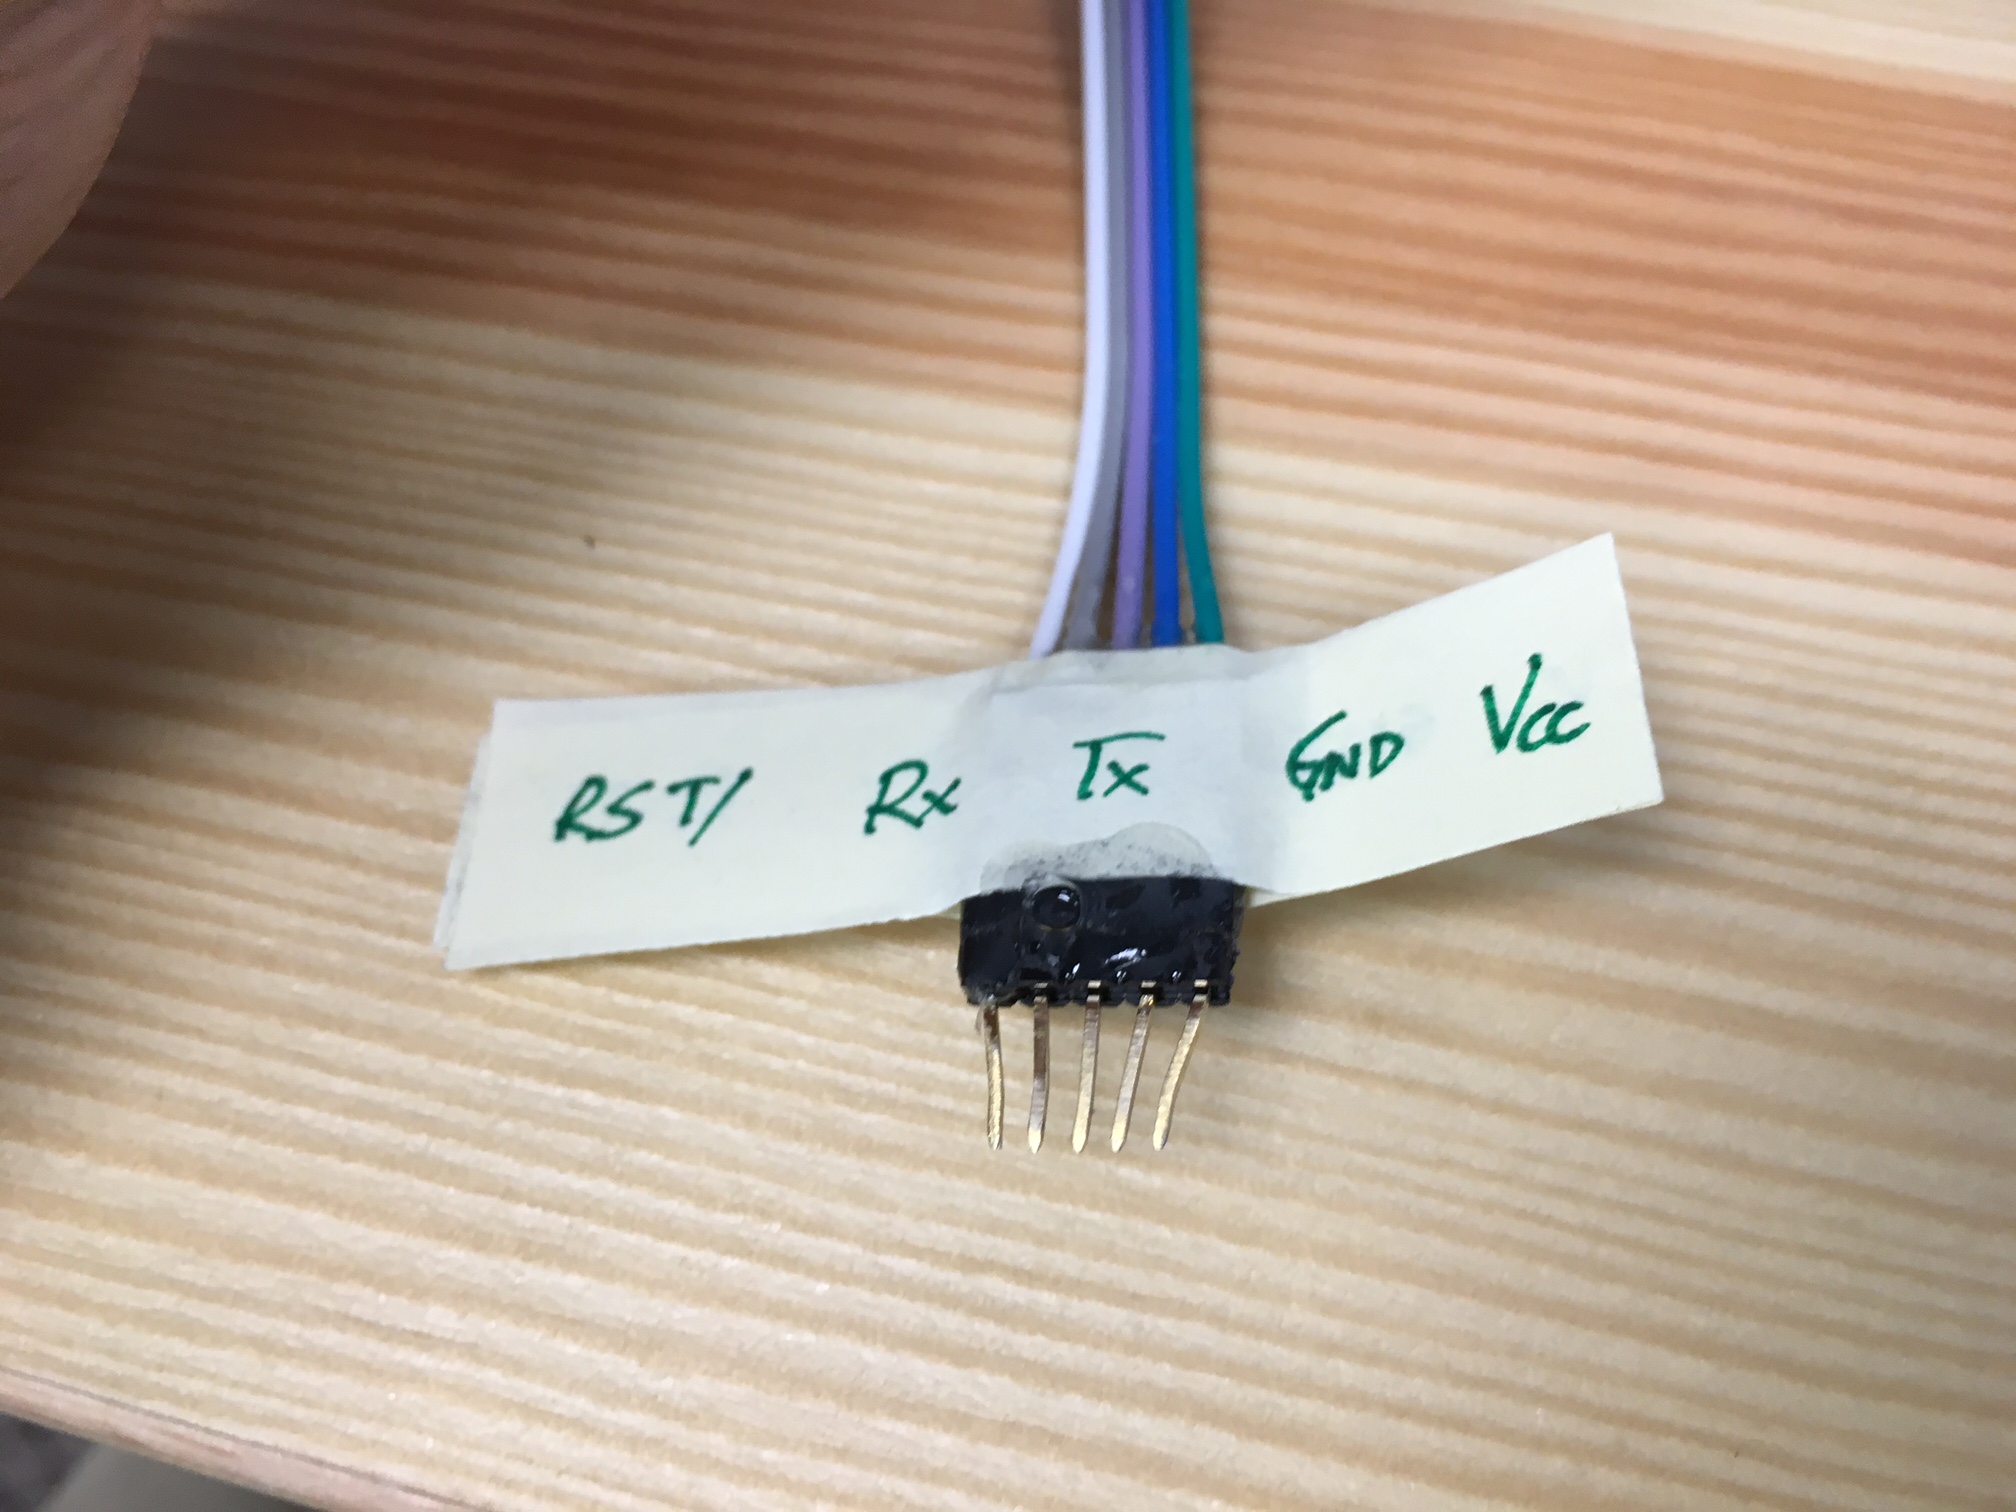 RST/ Rx Tx GND Vcc